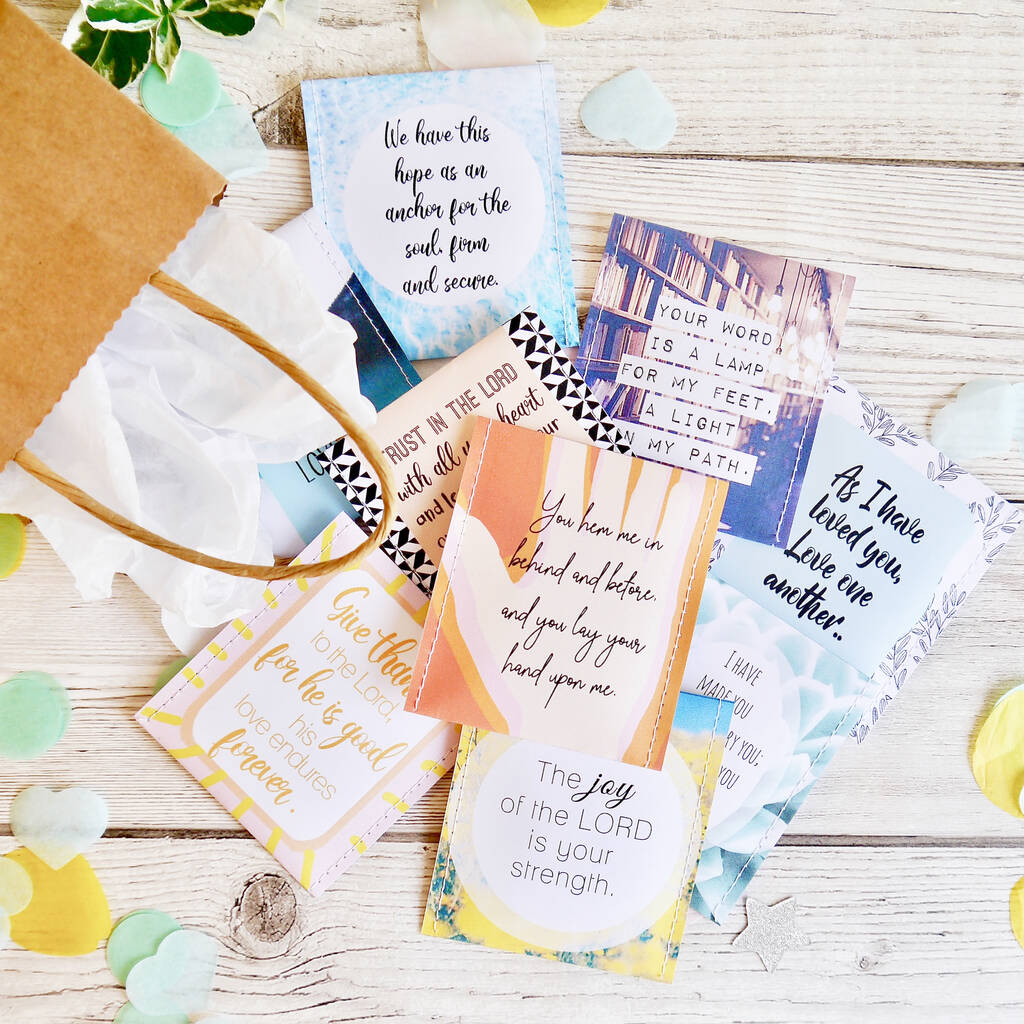 We have this
hope as an
anchor for the
soul, firm
and secure.
YOUR WORD
IS A LAMP
FOR MY FEET,
A LIGHT
ON MY PATH.
TRUST IN THE LORD
with all your heart
and
LO
As I have
loved you,
Love one
another..
You hem me in
behind and before,
and you lay your
hand upon me.
I HAVE
MADE YOU
RY YOU;
YOU
Give than
to the Lord,
for he is good
his
love endures
forever.
The joy
of the LORD
is your
strength.